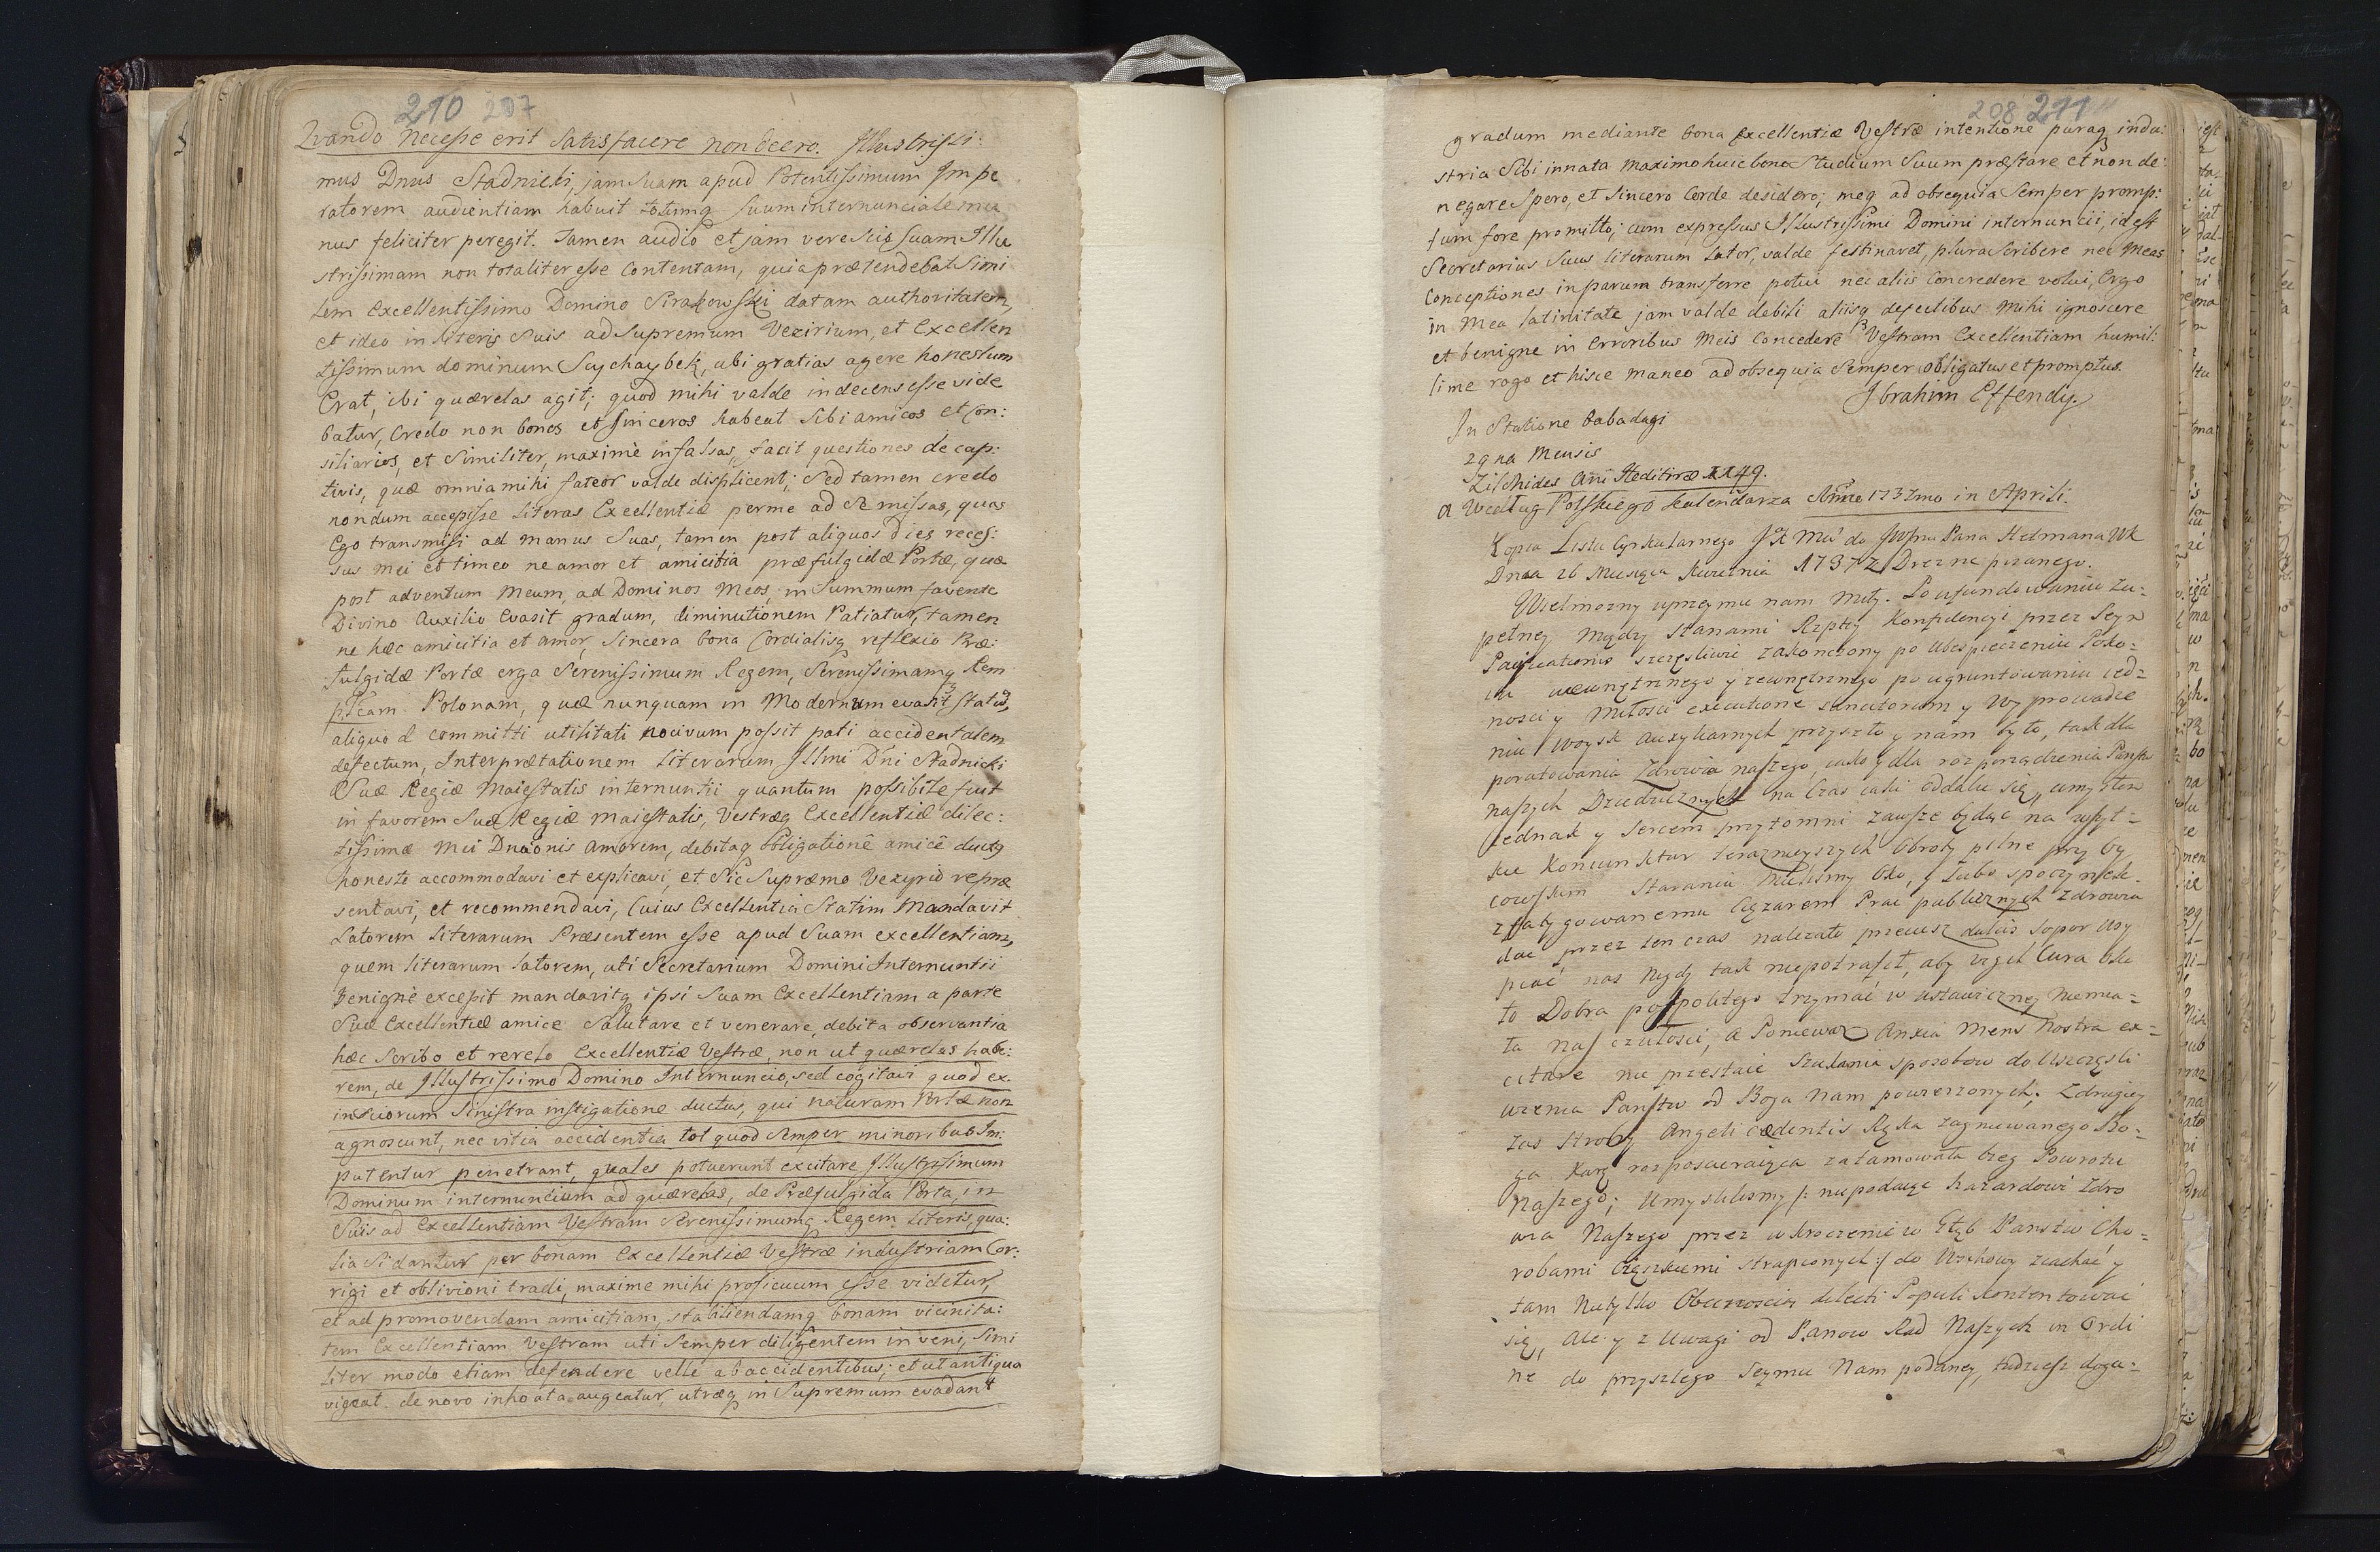 210 207
Quando Necesse erit satisfacere non deero. Illustrissi:
mus Dnus Stadnicki, jam suam apud Potentissimum Impe
ratorem audientiam habuit totumq suum internunciale mu
nus feliciter peregit. Tamen audio et jam vere scio suam Illu
strissimam non totaliter esse contentam, quia prætendebat simi
lem Excellentissimo Domino Sirakowski datam authoritatem,
et ideo in literis suis ad Supremum Vezirium, et Excellen
tissimum dominum Seychaybek, ubi gratias agere honestum
Erat, ibi quærelas agit; quod mihi valde indecens esse vide
batur, Credo non bonos et sinceros habeat sibi amicos et con:
siliarios, et similiter, maximè in falsas, facit questiones de cap:
tivis, quæ omnia mihi fateor valde displicent; Sed tamen credo
nondum accepisse literas Excellentiæ per me ad se missas, quas
Ego transmisi ad manus suas, tamen post aliquos dies reces:
sus mei et timeo ne amor et amicitia præfulgidæ Portæ, quæ
post adventum meum, ad Dominos meos, in summum favente
Divino Auxilio Evasit gradum, diminutionem Patiatur, tamen
ne hæc amicitia et amor, sincera bona Cordialisq reflexio Præ:
fulgidæ Portæ erga Serenissimum Regem, Serenissimamq Rem
plcam Polonam, quæ nunquam in Modernum evasit statu,
aliquod committi utilitati nocivum possit pati accidentalem
defectum, Interprætationem literarum Illmi Dni Stadnicki
Suæ Regiæ Maiestatis internuntii quantum possibile fuit
in favorem Suæ Regiæ Maiestatis, Vestræq Excellentiæ dilec:
tissimæ mei Dnaonis amorem, debitaq obligatione amice ductq
honeste accommodavi et explicavi, et Sic Supræmo Vezyrio repræ
sentavi, et recommendavi, Cuius Excellentia Statim Mandavit
Latorem literarum Præsentem esse apud Suam excellentiam,
quem literarum latorem, uti Secretarium Domini Internuntii
benignè excepit mandavitq ipsi Suam Excellentiam a parte
Suæ Excellentiæ amice Salutare et venerare, debita observantia
hæc Scribo et revelo Excellentiæ Vestræ, non ut quærelas habe:
rem, de Illustrissimo Domino Internuncio, sed cogitavi quod ex
insciorum Sinistra instigatione ductus, qui naturam Portæ non
agnoscunt, nec vitia accidentia tot quod semper minoribus Im:
putentur penetrant, quales potuerunt excitare Illustrissimum
Dominum internuncium ad quærelas, de Præfulgida Porta, in
Suis ad Excellentiam Vestram Serenissimumq Regem literis, qua:
lia Si dantur per bonam Excellentiæ Vestræ industriam Cor:
rigi et oblivioni tradi, maxime mihi proficuum esse videtur,
et ad promovendam amicitiam, stabiliendamq bonam vicinita:
tem Excellentiam Vestram uti Semper diligentem inveni, simi
liter modo etiam defendere velle ab accidentibus; et ut antiqua
vigeat de novo inhoata augeatur, utræq in Supremum evadant
208 211
gradum mediante bona Excellentiæ Vestræ intentione puraq indu:
stria Sibi innata maximo huic bono Studium Suum præstare et non de:
negare Spero, et Sincero Corde desidero; meq ad obsequia Semper promp:
tum fore promitto; cum expressus Illustrissimi Domini internuncii, id est
Secretarius Suus literarum Lator, valde festinavet, plura Scribere nec Meas
Conceptiones in parum transferre potui nec aliis Concredere volui, Ergo
in Mea latinitate jam valde debili aliisq defectibus Mihi ignoscere
et benigne in Erroribus Meis Concedere Vestram Excellentiam humil:
lime rogo et hisce maneo ad obsequia Semper obligatus et promptus.
Ibrahim Effendy
In Statione Babadagi
29na Mensis
Zilchides Ani Heditiræ 1149.
a Według Polskiego kalendarza Anno 1737mo in Aprili.
Kopia Listu Cyrkularnego JKMci do JWPna Pana Hetmana WK
Dnia 26 Miesiąca Kwietnia 1737 z Drezna pisanego.
Wielmozny uprzeymie nam miły. Po ufundowaniu zu:
pełney między Stanami Rzptey Konfidencyi przez Seym
Pacificationis szczęsliwie zakonczony po ubespieczeniu Poko:
iu wewnętrznego y zewnętrznego po ugruntowaniu ied:
nosci y Miłosci executione senatorum y Wyprowadze
niu Woysk Auxyliarnych przyszło y nam było, tak dla
poratowania Zdrowia naszego, iako y dla rozporządzenia Państw
naszych Dziedzicznych na Czas iaki oddalić się, umysłem
Jednak y sercem przytomni zawsze będąc na wszyt:
kie Koniunktur terazneyszych Obroty pilne przy Oy
cowskim Staraniu Mielismy Oko, y lubo spoczynek
zfatygowanemu Ciężarem Prac publicznych zdrowia
dać przez ten czas należało przecięsz dulcis sopor Usy
piać nas nigdy tak niepotrafił, aby vigil Cura Oko
to Dobra pospolitego trzymać w ustawiczney Niemia:
ła nas czułosci, a Poniewaz Anxia Mens Nostra ex:
citare nie przestaie Szukania sposobow do Uszczęsli
wienia Państw od Boga Nam powierzonych; Zdrugiey
zas strony Angeli cædentis Ręka zagniewanego Bo:
ga karę rozposcieraiąca zatamowała bieg Powrotu
Naszego; Umyslilismy /: niepodaiąc hazardowi Zdro
wia Naszego przez wkroczenie w Głąb Państw Cho:
robami Ciężkiemi strapionych :/ do Wschowy ziachać y
tam Nietylko Obecnoscią dilecti Populi kontentować
się, ale y z Uwagi od Panow Rad Naszych in Ordi
ne do przyszłego Seymu Nam podaney, tudziesz doga: